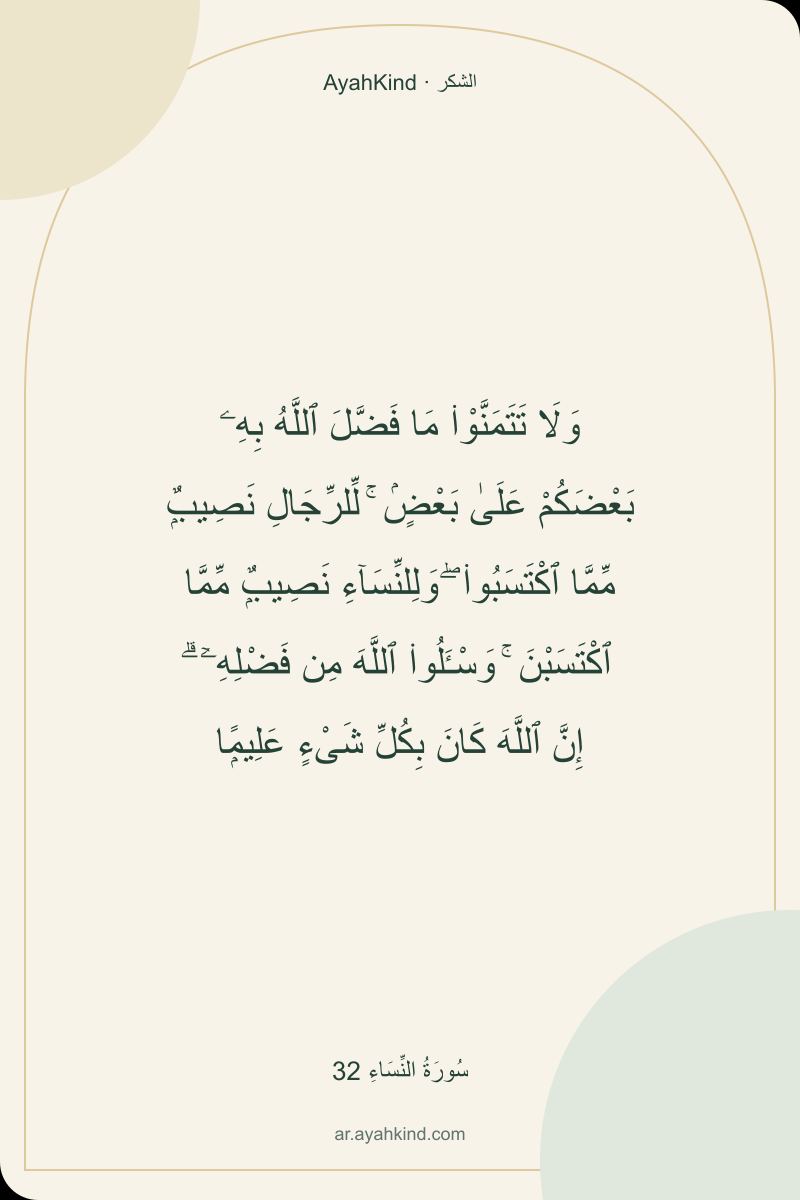 AyahKind · الشكر
وَلَا تَتَمَنَّوْا۟ مَا فَضَّلَ ٱللَّهُ بِهِۦ
بَعْضَكُمْ عَلَىٰ بَعْضٍۢ ۚ لِّلرِّجَالِ نَصِيبٌۭ
مِّمَّا ٱكْتَسَبُوا۟ ۖ وَلِلنِّسَآءِ نَصِيبٌۭ مِّمَّا
ٱكْتَسَبْنَ ۚ وَسْـَٔلُوا۟ ٱللَّهَ مِن فَضْلِهِۦٓ ۗ
إِنَّ ٱللَّهَ كَانَ بِكُلِّ شَىْءٍ عَلِيمًۭا
سُورَةُ النِّسَاءِ 32
ar.ayahkind.com